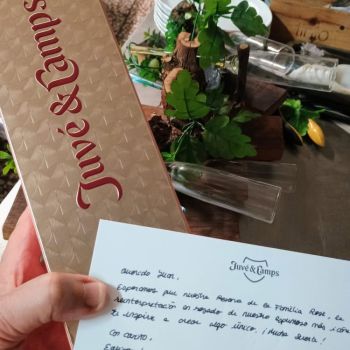 Juvé & Camps
Juvé & Camps
Querido Juan,
Esperamos que nuestra Reserva de la Familia Rosé, la
reinterpretación en rosado de nuestro espumoso más icónico
te inspire a crear algo único. ¡Mucha suerte!
Con cariño,